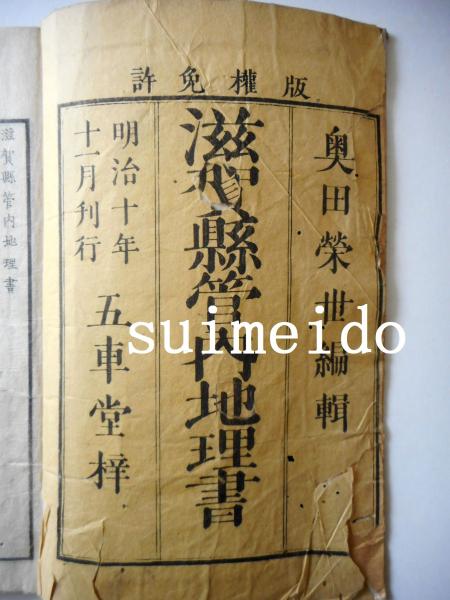 版權免許
奥田榮世編輯
滋賀縣管内地理書
明治十年
十一月刊行
五車堂梓
滋賀縣管内地理書
suimeido